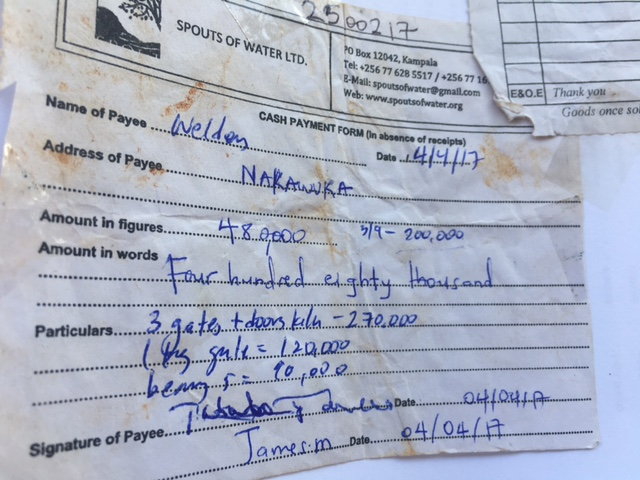 2500217
SPOUTS OF WATER LTD.
PO Box 12042, Kampala
Tel: +256 77 628 5517 / +256 77 16
E-Mail: spoutsofwater@gmail.com
Web: www.spoutsofwater.org
E&O.E Thank you
Goods once so
CASH PAYMENT FORM (in absence of receipts)
Name of Payee Welders Date 4/4/17
Address of Payee NAKAWUKA
Amount in figures 480,000 200,000
Amount in words
Four hundred eighty thousand
Particulars 3 gates + doors kiln = 270,000
1 big gate = 120,000
= 90,000
Date 04/04/17
Signature of Payee James.m Date 04/04/17